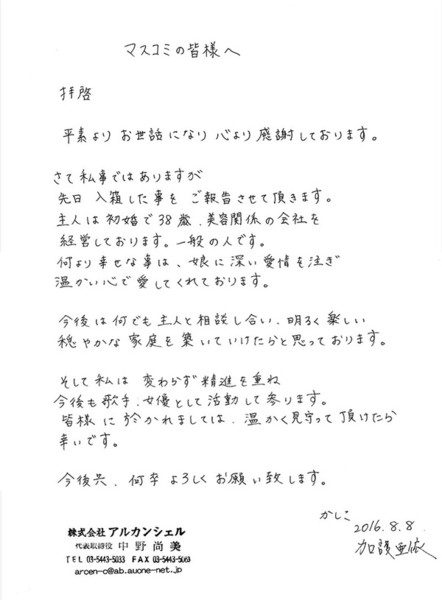 マスコミの皆様へ
拝啓
平素より お世話になり 心より感謝しております。
さて私事ではありますが
先日 入籍した事を ご報告させて頂きます。
主人は初婚で38歳、美容関係の会社を
経営しております。一般の人です。
何より幸せな事は、娘に深い愛情を注ぎ
温かい心で愛してくれております。
今後は何でも主人と相談し合い、明るく楽しい
穏やかな家庭を築いていけたらと思っております。
そして私は 変わらず精進を重ね
今後も歌手、女優として活動して参ります。
皆様に於かれましては、温かく見守って頂けたら
幸いです。
今後共、何卒よろしくお願い致します。
かしこ
2016.8.8
加護亜依
株式会社 アルカンシェル
代表取締役 中野尚美
TEL 03-5443-5033 FAX 03-5443-5069
arcen-c@ab.auone-net.jp